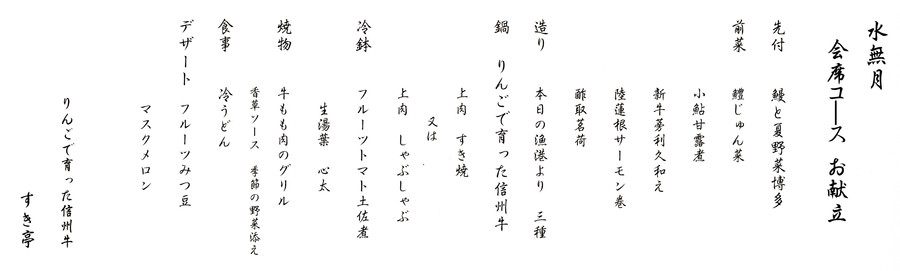 水無月
会席コース お献立
先付 鰻と夏野菜博多
前菜 鱧じゅん菜
小鮎甘露煮
新牛蒡利久和え
陸蓮根サーモン巻
酢取茗荷
造り 本日の漁港より 三種
鍋 りんごで育った信州牛
上肉 すき焼
又は
上肉 しゃぶしゃぶ
冷鉢 フルーツトマト土佐煮
生湯葉 心太
焼物 牛もも肉のグリル
香草ソース 季節の野菜添え
食事 冷うどん
デザート フルーツみつ豆
マスクメロン
りんごで育った信州牛
すき亭